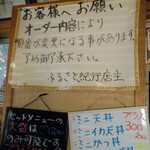 お客様へお願い
オーダー内容により
順番が変更になる事があります。
予め御了承下さい。
ふるさと紀行店主
セットメニューの
大盛は
のみ可能です
ミニ天丼
ミニイカ天丼
ミニかつ丼
プラス
300